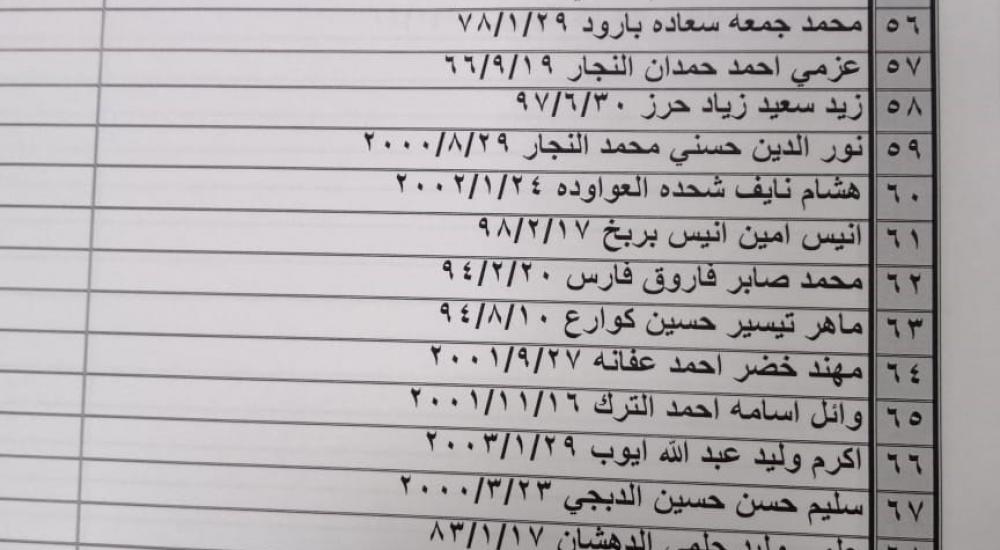 ٥٦ محمد جمعه سعاده بارود ٧٨/١/٢٩
٥٧ عزمي احمد حمدان النجار ٦٦/٩/١٩
٥٨ زيد سعيد زياد حرز ٩٧/٦/٣٠
٥٩ نور الدين حسني محمد النجار ٢٠٠٠/٨/٢٩
٦٠ هشام نايف شحده العواوده ٢٠٠٢/١/٢٤
٦١ انيس امين انيس بربخ ٩٨/٢/١٧
٦٢ محمد صابر فاروق فارس ٩٤/٢/٢٠
٦٣ ماهر تيسير حسين كوارع ٩٤/٨/١٠
٦٤ مهند خضر احمد عفانه ٢٠٠١/٩/٢٧
٦٥ وائل اسامه احمد الترك ٢٠٠١/١١/١٦
٦٦ اكرم وليد عبد الله ايوب ٢٠٠٣/١/٢٩
٦٧ سليم حسن حسين الدبجي ٢٠٠٠/٣/٢٣
وليد حلمي الدهشان ٨٣/١/١٧